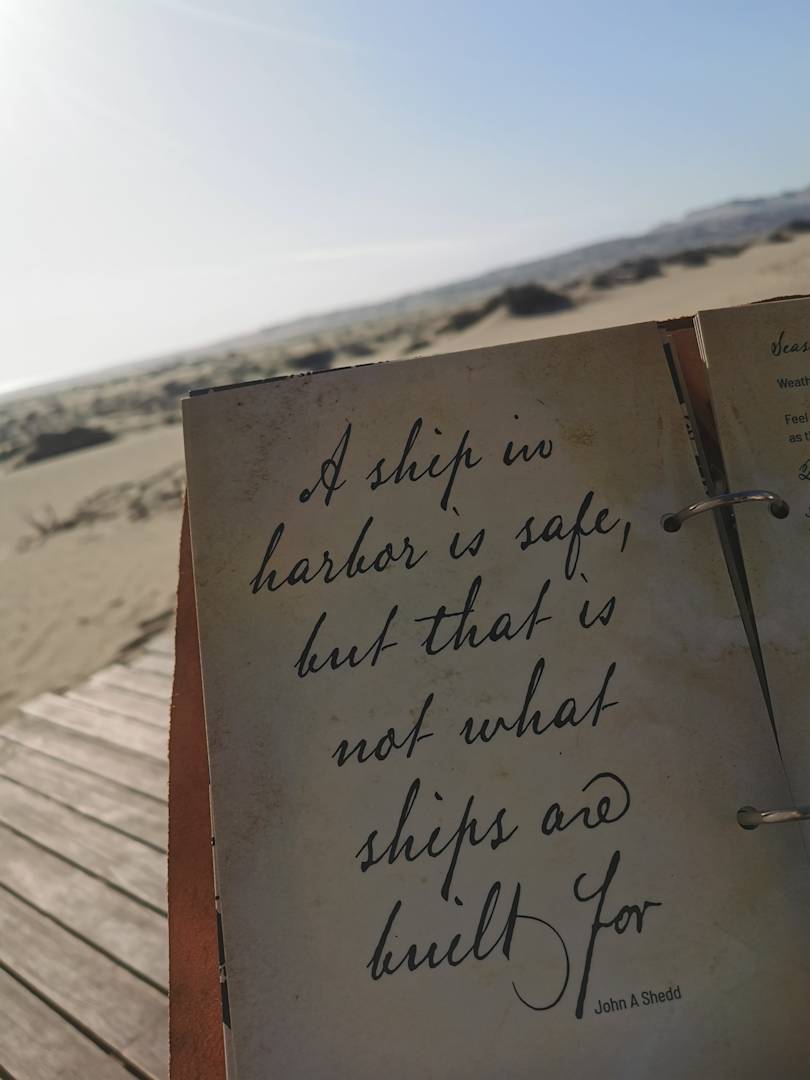 A ship in
harbor is safe,
but that is
not what
ships are
built for
John A Shedd
Feel
as